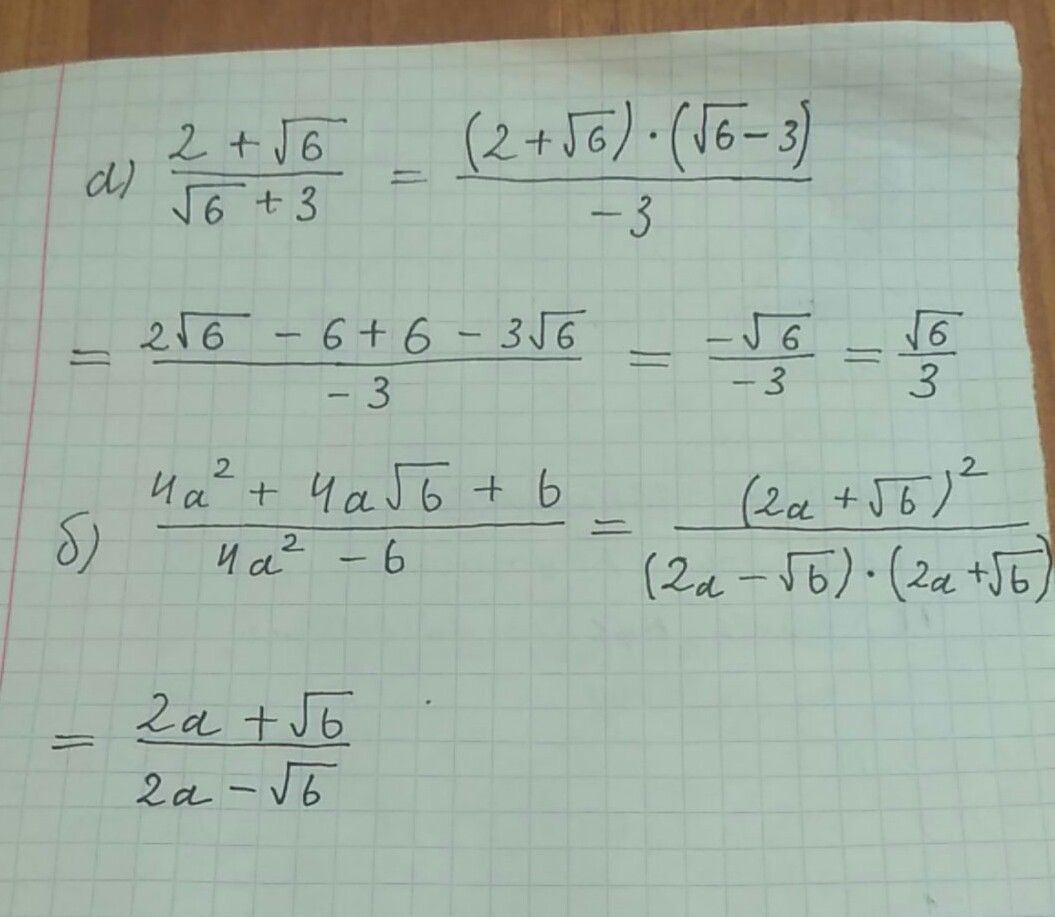 а) \frac{2 + \sqrt{6}}{\sqrt{6} + 3} = \frac{(2 + \sqrt{6}) \cdot (\sqrt{6} - 3)}{-3}
= \frac{2\sqrt{6} - 6 + 6 - 3\sqrt{6}}{-3} = \frac{-\sqrt{6}}{-3} = \frac{\sqrt{6}}{3}
б) \frac{4a^2 + 4a\sqrt{b} + b}{4a^2 - b} = \frac{(2a + \sqrt{b})^2}{(2a - \sqrt{b}) \cdot (2a + \sqrt{b})}
= \frac{2a + \sqrt{b}}{2a - \sqrt{b}}